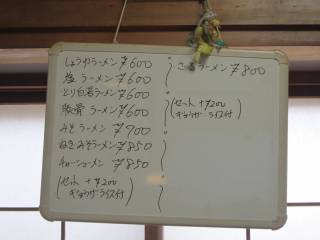 しょうゆラーメン ¥600
塩 ラーメン ¥600
とり白湯ラーメン ¥600
豚骨 ラーメン ¥600
みそ ラーメン ¥700
ねぎみそラーメン ¥850
チャーシューメン ¥850
(セット +¥200
ギョウザ ライス付)
ラーメン ¥800
(セット +¥200
ギョウザ ライス付)